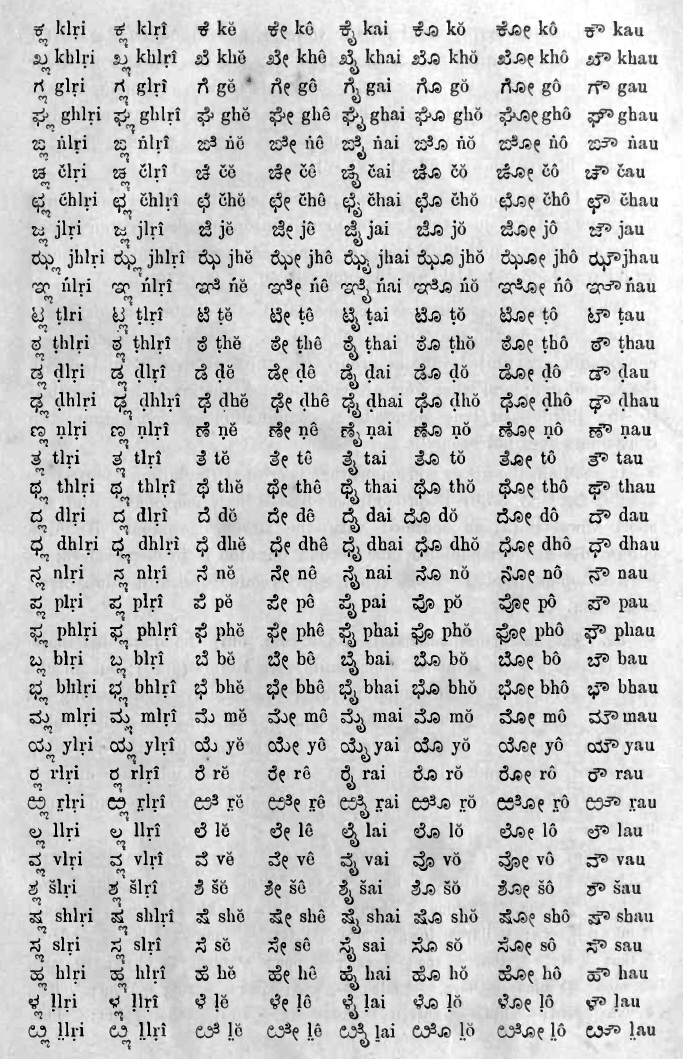 ಕೢ klṛi ಕೣ klṛî ಕೆ kĕ ಕೇ kê ಕೈ kai ಕೊ kŏ ಕೋ kô ಕೌ kau
ಖೢ khlṛi ಖೣ khlṛî ಖೆ khĕ ಖೇ khê ಖೈ khai ಖೊ khŏ ಖೋ khô ಖೌ khau
ಗೢ glṛi ಗೣ glṛî ಗೆ gĕ ಗೇ gê ಗೈ gai ಗೊ gŏ ಗೋ gô ಗೌ gau
ಘೢ ghlṛi ಘೣ ghlṛî ಘೆ ghĕ ಘೇ ghê ಘೈ ghai ಘೊ ghŏ ಘೋ ghô ಘೌ ghau
ಙೢ ṅlṛi ಙೣ ṅlṛî ಙೆ ṅĕ ಙೇ ṅê ಙೈ ṅai ಙೊ ṅŏ ಙೋ ṅô ಙೌ ṅau
ಚೢ člṛi ಚೣ člṛî ಚೆ čĕ ಚೇ čê ಚೈ čai ಚೊ čŏ ಚೋ čô ಚೌ čau
ಛೢ čhlṛi ಛೣ čhlṛî ಛೆ čhĕ ಛೇ čhê ಛೈ čhai ಛೊ čhŏ ಛೋ čhô ಛೌ čhau
ಜೢ jlṛi ಜೣ jlṛî ಜೆ jĕ ಜೇ jê ಜೈ jai ಜೊ jŏ ಜೋ jô ಜೌ jau
ಝೢ jhlṛi ಝೣ jhlṛî ಝೆ jhĕ ಝೇ jhê ಝೈ jhai ಝೊ jhŏ ಝೋ jhô ಝೌ jhau
ಞೢ ńlṛi ಞೣ ńlṛî ಞೆ ńĕ ಞೇ ńê ಞೈ ńai ಞೊ ńŏ ಞೋ ńô ಞೌ ńau
ಟೢ ṭlṛi ಟೣ ṭlṛî ಟೆ ṭĕ ಟೇ ṭê ಟೈ ṭai ಟೊ ṭŏ ಟೋ ṭô ಟೌ ṭau
ಠೢ ṭhlṛi ಠೣ ṭhlṛî ಠೆ ṭhĕ ಠೇ ṭhê ಠೈ ṭhai ಠೊ ṭhŏ ಠೋ ṭhô ಠೌ ṭhau
ಡೢ ḍlṛi ಡೣ ḍlṛî ಡೆ ḍĕ ಡೇ ḍê ಡೈ ḍai ಡೊ ḍŏ ಡೋ ḍô ಡೌ ḍau
ಢೢ ḍhlṛi ಢೣ ḍhlṛî ಢೆ ḍhĕ ಢೇ ḍhê ಢೈ ḍhai ಢೊ ḍhŏ ಢೋ ḍhô ಢೌ ḍhau
ಣೢ ṇlṛi ಣೣ ṇlṛî ಣೆ ṇĕ ಣೇ ṇê ಣೈ ṇai ಣೊ ṇŏ ಣೋ ṇô ಣೌ ṇau
ತೢ tlṛi ತೣ tlṛî ತೆ tĕ ತೇ tê ತೈ tai ತೊ tŏ ತೋ tô ತೌ tau
ಥೢ thlṛi ಥೣ thlṛî ಥೆ thĕ ಥೇ thê ಥೈ thai ಥೊ thŏ ಥೋ thô ಥೌ thau
ದೢ dlṛi ದೣ dlṛî ದೆ dĕ ದೇ dê ದೈ dai ದೊ dŏ ದೋ dô ದೌ dau
ಧೢ dhlṛi ಧೣ dhlṛî ಧೆ dhĕ ಧೇ dhê ಧೈ dhai ಧೊ dhŏ ಧೋ dhô ಧೌ dhau
ನೢ nlṛi ನೣ nlṛî ನೆ nĕ ನೇ nê ನೈ nai ನೊ nŏ ನೋ nô ನೌ nau
ಪೢ plṛi ಪೣ plṛî ಪೆ pĕ ಪೇ pê ಪೈ pai ಪೊ pŏ ಪೋ pô ಪೌ pau
ಫೢ phlṛi ಫೣ phlṛî ಫೆ phĕ ಫೇ phê ಫೈ phai ಫೊ phŏ ಫೋ phô ಫೌ phau
ಬೢ blṛi ಬೣ blṛî ಬೆ bĕ ಬೇ bê ಬೈ bai ಬೊ bŏ ಬೋ bô ಬೌ bau
ಭೢ bhlṛi ಭೣ bhlṛî ಭೆ bhĕ ಭೇ bhê ಭೈ bhai ಭೊ bhŏ ಭೋ bhô ಭೌ bhau
ಮೢ mlṛi ಮೣ mlṛî ಮೆ mĕ ಮೇ mê ಮೈ mai ಮೊ mŏ ಮೋ mô ಮೌ mau
ಯೢ ylṛi ಯೣ ylṛî ಯೆ yĕ ಯೇ yê ಯೈ yai ಯೊ yŏ ಯೋ yô ಯೌ yau
ರೢ rlṛi ರೣ rlṛî ರೆ rĕ ರೇ rê ರೈ rai ರೊ rŏ ರೋ rô ರೌ rau
ಱೢ r̤lṛi ಱೣ r̤lṛî ಱೆ r̤ĕ ಱೇ r̤ê ಱೈ r̤ai ಱೊ r̤ŏ ಱೋ r̤ô ಱೌ r̤au
ಲೢ llṛi ಲೣ llṛî ಲೆ lĕ ಲೇ lê ಲೈ lai ಲೊ lŏ ಲೋ lô ಲೌ lau
ವೢ vlṛi ವೣ vlṛî ವೆ vĕ ವೇ vê ವೈ vai ವೊ vŏ ವೋ vô ವೌ vau
ಶೢ šlṛi ಶೣ šlṛî ಶೆ šĕ ಶೇ šê ಶೈ šai ಶೊ šŏ ಶೋ šô ಶೌ šau
ಷೢ shlṛi ಷೣ shlṛî ಷೆ shĕ ಷೇ shê ಷೈ shai ಷೊ shŏ ಷೋ shô ಷೌ shau
ಸೢ slṛi ಸೣ slṛî ಸೆ sĕ ಸೇ sê ಸೈ sai ಸೊ sŏ ಸೋ sô ಸೌ sau
ಹೢ hlṛi ಹೣ hlṛî ಹೆ hĕ ಹೇ hê ಹೈ hai ಹೊ hŏ ಹೋ hô ಹೌ hau
ಳೢ ḷlṛi ಳೣ ḷlṛî ಳೆ ḷĕ ಳೇ ḷê ಳೈ ḷai ಳೊ ḷŏ ಳೋ ḷô ಳೌ ḷau
ೞೢ l̤lṛi ೞೣ l̤lṛî ೞೆ l̤ĕ ೞೇ l̤ê ೞೈ l̤ai ೞೊ l̤ŏ ೞೋ l̤ô ೞೌ l̤au